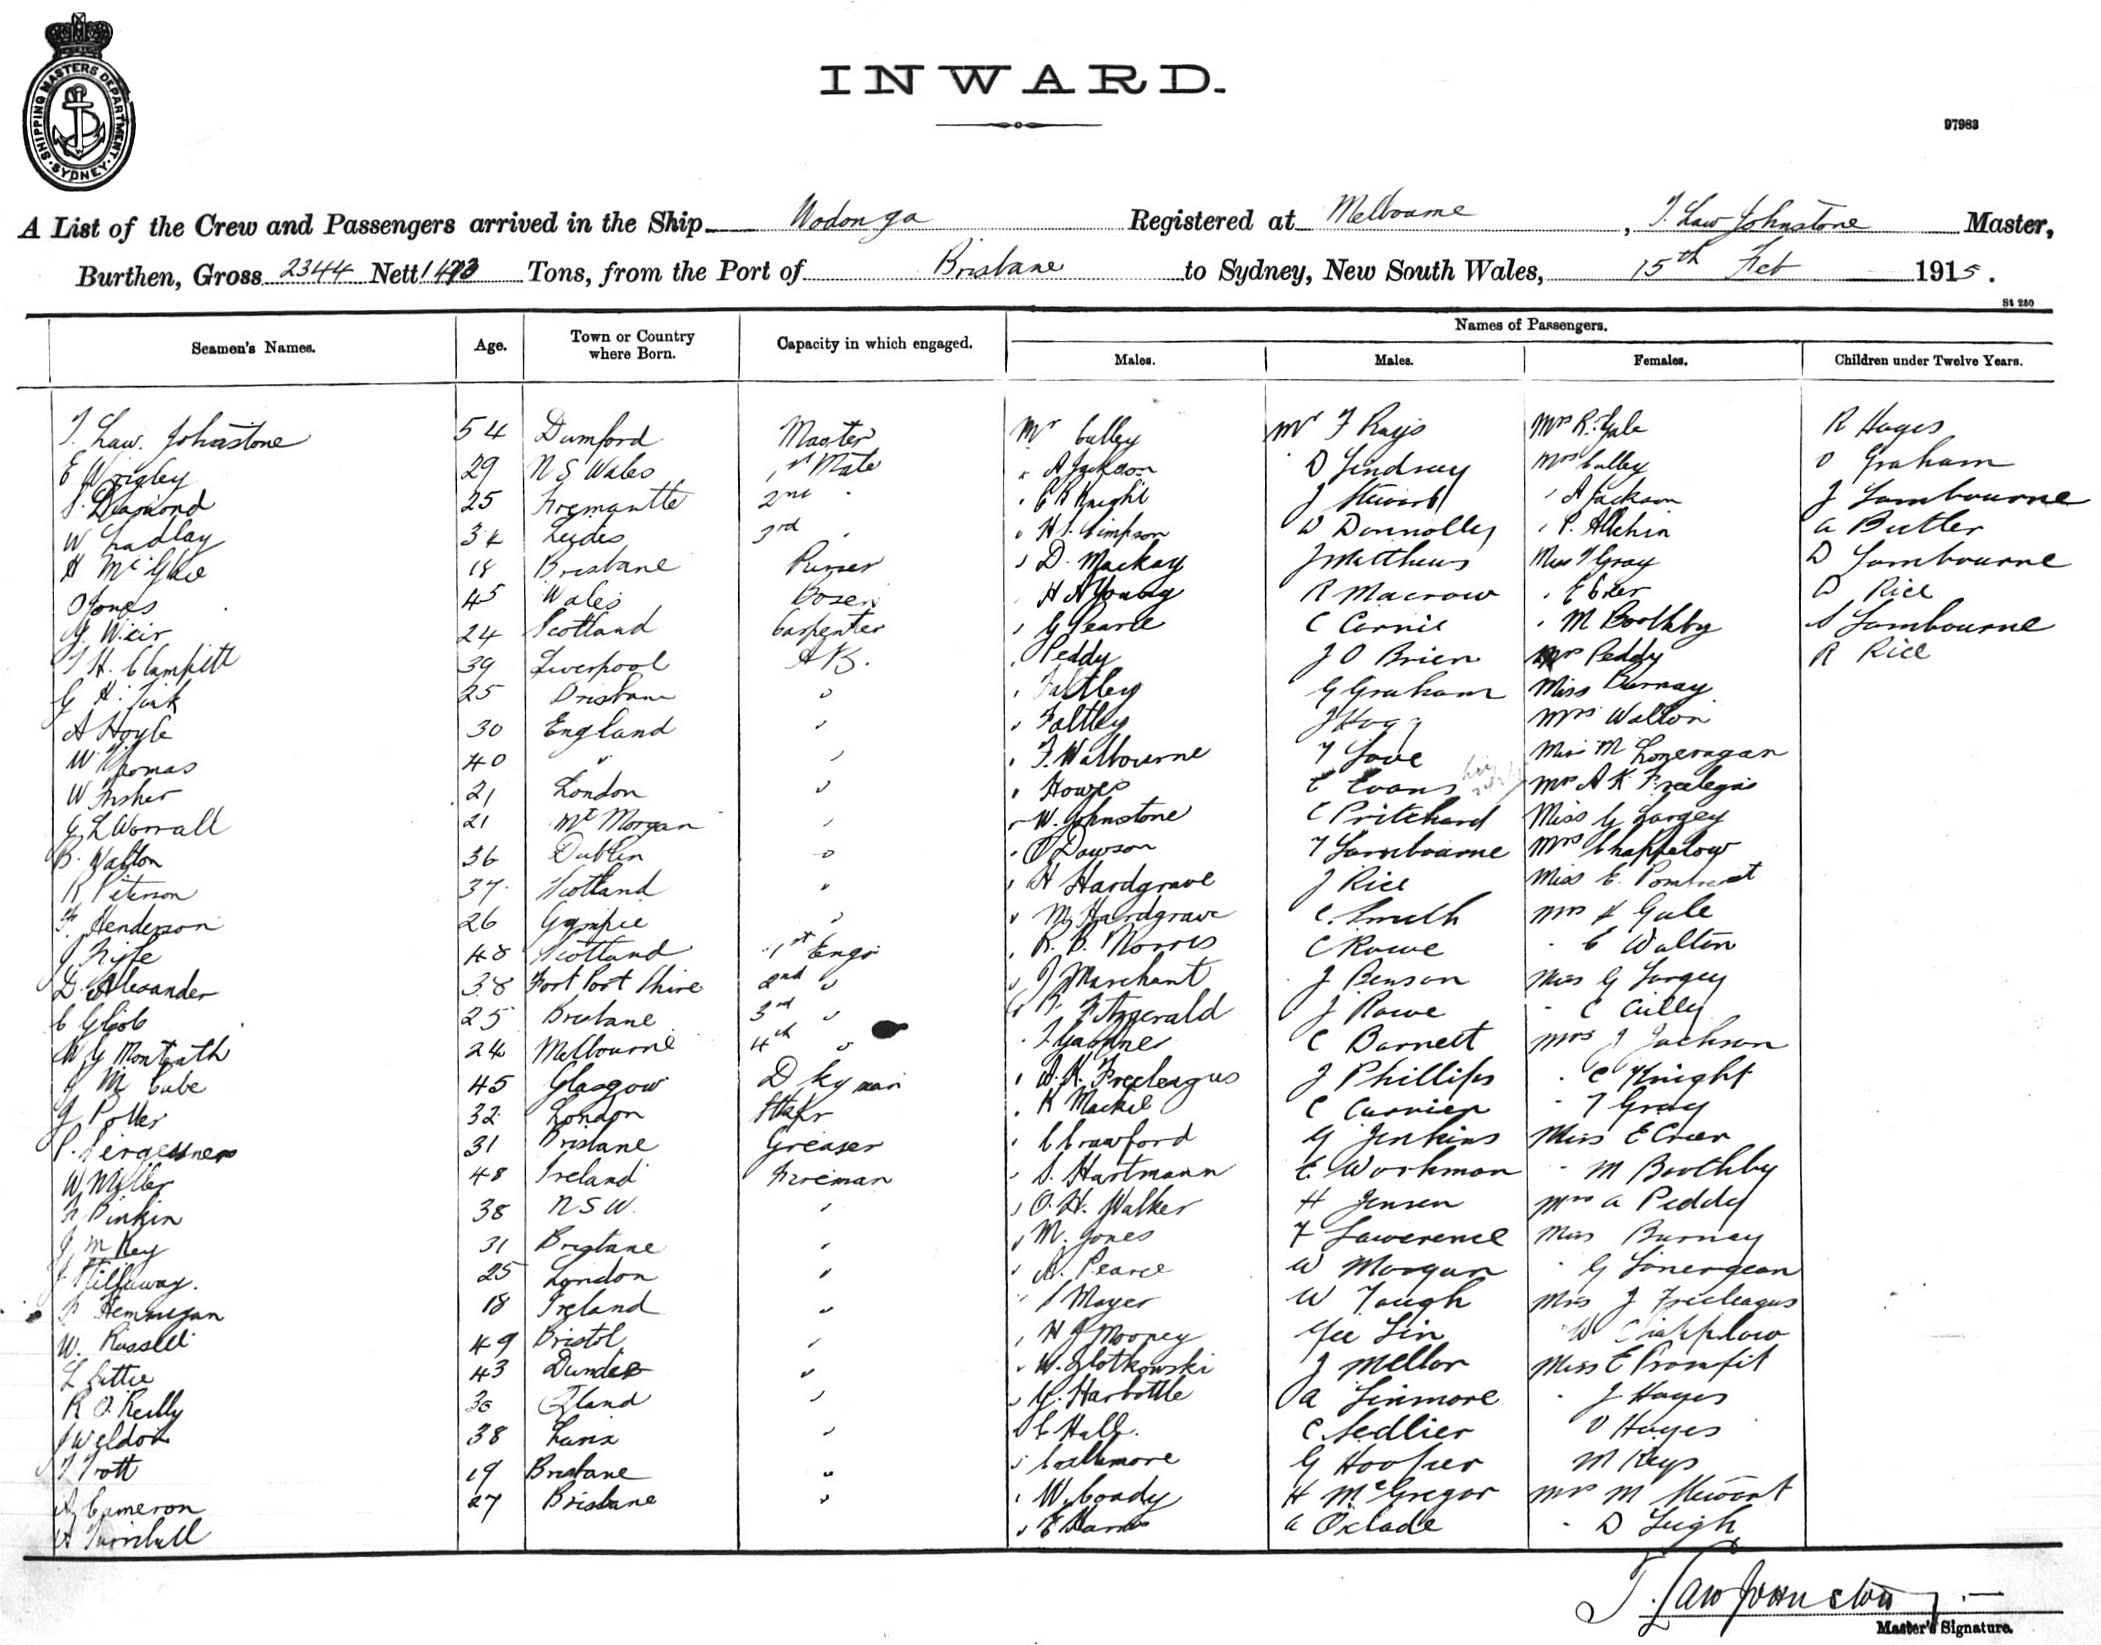 SHIPPING MASTERS DEPARTMENT · SYDNEY ·
INWARD.
97983
A List of the Crew and Passengers arrived in the Ship Wodonga Registered at Melbourne, T. Law Johnstone Master,
Burthen, Gross 2344 Nett Tons, from the Port of Brisbane to Sydney, New South Wales, 15th Feb 1915.
St 250
Names of Passengers.
Seamen's Names. Age. Town or Country where Born. Capacity in which engaged. Males. Males. Females. Children under Twelve Years.
T. Law. Johnstone 54 Dumford Master Mr Culley Mr F Rays Mrs R. Gale R Hayes
E Wrigley 29 N S Wales 1st Mate A Jackson D Lindsay Mrs Culley O Graham
S. Diamond 25 Fremantle 2nd " C R Knight J Stewart " A Jackson J Lambourne
W 34 3rd " H S. Simpson D Donnolley " P. Allchin A Butler
H 18 Brisbane Purser " D. Mackay J Matthews Miss T Gray D Lambourne
O Jones 45 Wales Bosen H A Young R Macrow " E Crer D Rice
J. Weir 24 Scotland Carpenter " G Pearce C Carnie " M Boothby S Lambourne
T. H. Clampitt 39 Liverpool A B. " Peddy J O Brien Mrs Peddy R Rice
G H. 25 Brisbane " " Faltley G Graham Miss Burnay
A Hoyle 30 England " " Faltley J Hogg Mrs Walton
W Thomas 40 " " " F. Walbourne T Love Miss M Loneragan
W Fisher 21 London " " Howes E Evans Mrs A K Freelegus
G L Worrall 21 Mt Morgan " " W. Johnstone C Pritchard Miss G Largey
B. Walton 36 Dublin " " O Dawson T Lambourne Mrs Chappelow
R Peterson 37 Scotland " " H Hardgrave J Rice Miss E.
F. Henderson 26 Gympie " " M Hardgrave C. Smith Mrs H Gale
J Fyfe 48 Scotland 1st Engr " R. B. Norris C Rowe " C Walton
D. Alexander 38 Fort Port Shire 2nd " " J Marchant J Benson Miss G Largey
C 25 Brisbane 3rd " Fitzgerald J Rowe " C Cully
W G Monteath 24 Melbourne 4th " " T. C Barnett Mrs J Jackson
J Mc Cabe 45 Glasgow D Kyman " A. K. Freeleagus J Phillips " C Knight
J Potter 32 London " H Mackie C Currier " T Gray
P. 31 Brisbane Greaser " C Crawford G Jenkins Miss E Crer
W Miller 48 Ireland Fireman " S. Hartmann E. Workman " M Boothby
Binkin 38 N S W. " " O. H. Walker H Jensen Mrs A Peddy
J McKey 31 Brisbane " " M. Jones F Lawerence Miss Burnay
J 25 London " " A. Pearce W Morgan " G Lonergean
18 Ireland " " Mayer W Tough Mrs J Freeleagus
W. Russell 49 Bristol " " H J Mooney Yee Lin W Chapplow
L Juttie 43 Dundee " " W. Zlotkowski J Mellor Miss E Promfit
R O. Reilly 30 " " G. Harbottle A Linmore " J Hayes
J Weldon 38 " " C Hall. C. Sedlier O Hayes
T Trott 19 Brisbane " " G Hooper M Keys
A Cameron 27 Brisbane " " W. Coady H McGregor Mrs M Stewart
A Turnbull " E Harris A Oxlade " D Leigh
T. Law Johnstone
Master's Signature.